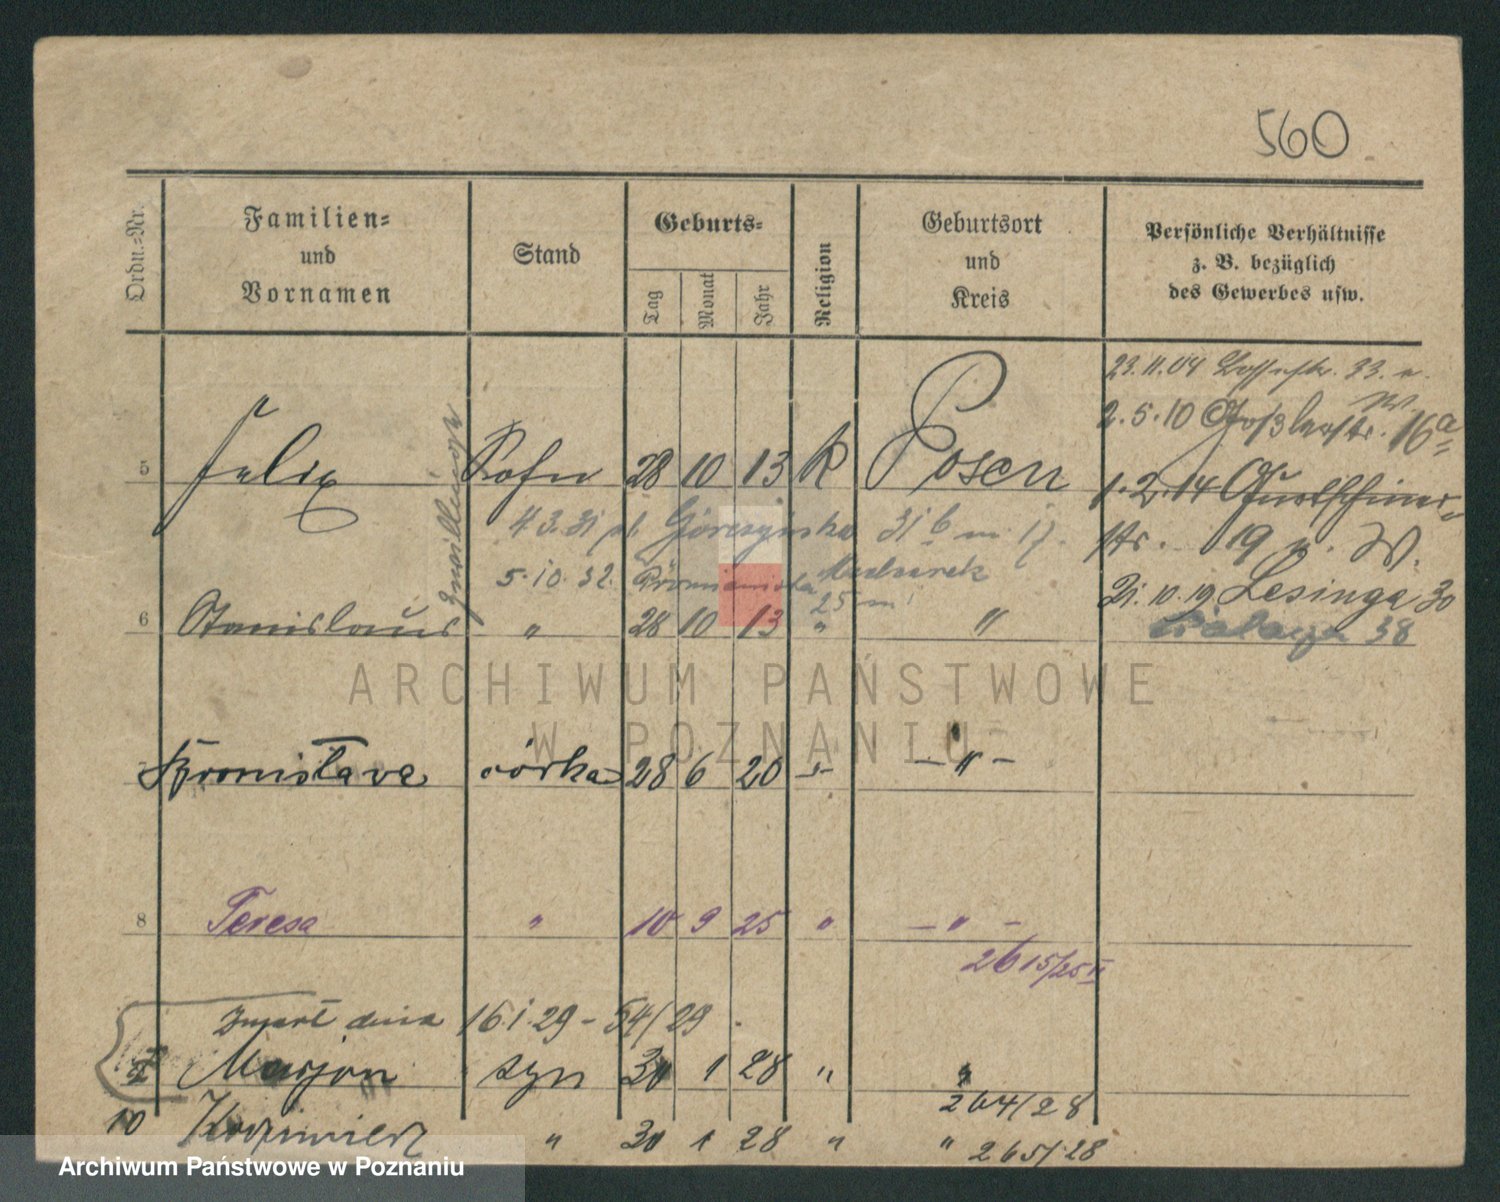 560
Ordn.=Nr.
Familien=
und
Vornamen
Stand
Geburts=
Tag
Monat
Jahr
Religion
Geburtsort
und
Kreis
Persönliche Verhältnisse
z. B. bezüglich
des Gewerbes usw.
23.11.04 33.
2.5.10 16a
5 Felix Sohn 28 10 13 k Posen
Zwillinge
1.2.14
str. 19 W.
4 3.31 ul. Góreczyńska 31 b m 17.
5.10.32. 25 m
21.10.19 Lesinga 30
6 Stanislaus " 28 10 13 " "
38
ARCHIWUM PAŃSTWOWE
W POZNANIU
Bronisława córka 28 6 20 -"- -"-
8 Teresa " 10 9 25 " -"-
2615/25 II
Zmarł dnia 16.1.29 - 54/29.
Marjan syn 30 1 28 " "
264/28
10 Kazimierz " 30 1 28 " " 265/28
Archiwum Państwowe w Poznaniu